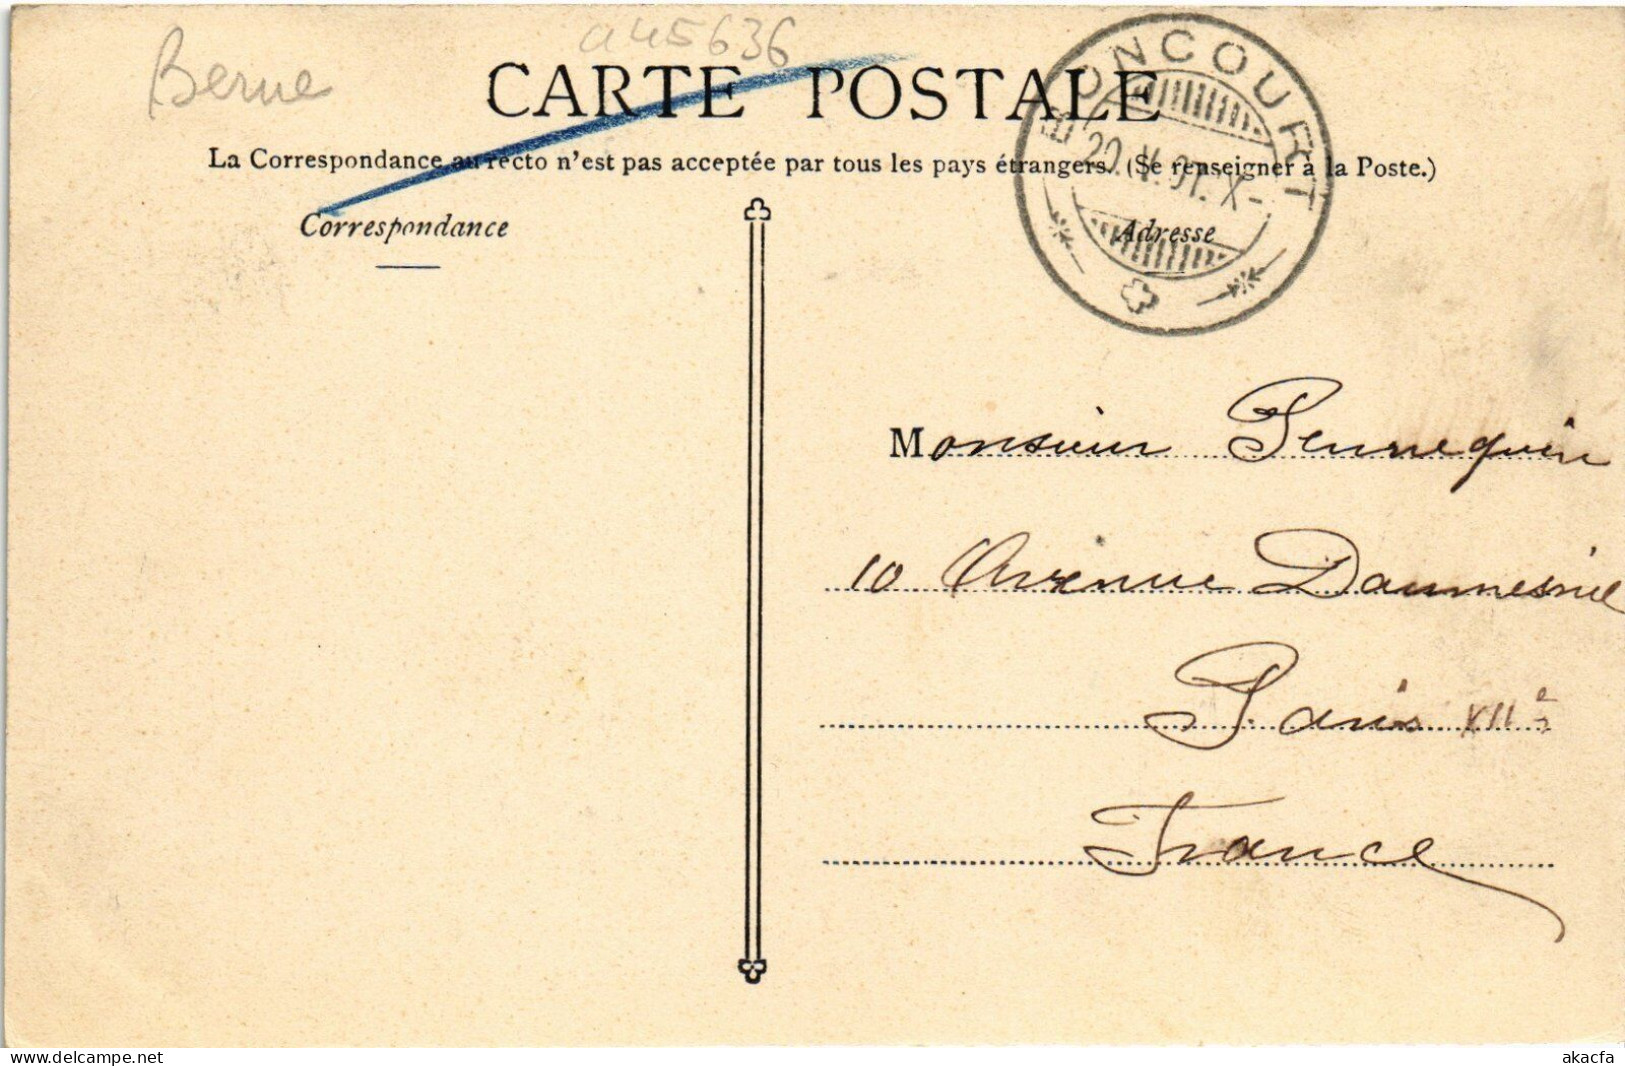 Berne
a45636
CARTE POSTALE
La Correspondance au recto n'est pas acceptée par tous les pays étrangers. (Se renseigner à la Poste.)
Correspondance
Adresse
BONCOURT
20. V. 07. X-
Monsieur Pennequin
10 Avenue Daumesnil
Paris XIIe
France
delcampe.net
akacfa